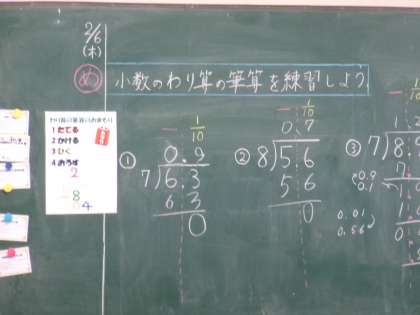 2/6
(木)
め 小数のわり算の筆算を練習しよう
わり算の筆算のきまり
1 たてる
2 かける
3 ひく
4 おろす
2
8
4
①
一 1/10
0.9
7)6.3
6 3
0
②
一 1/10
0.7
8)5.6
5 6
0
③
1/10
7)8.
0.9
0.1
0.01
0.56